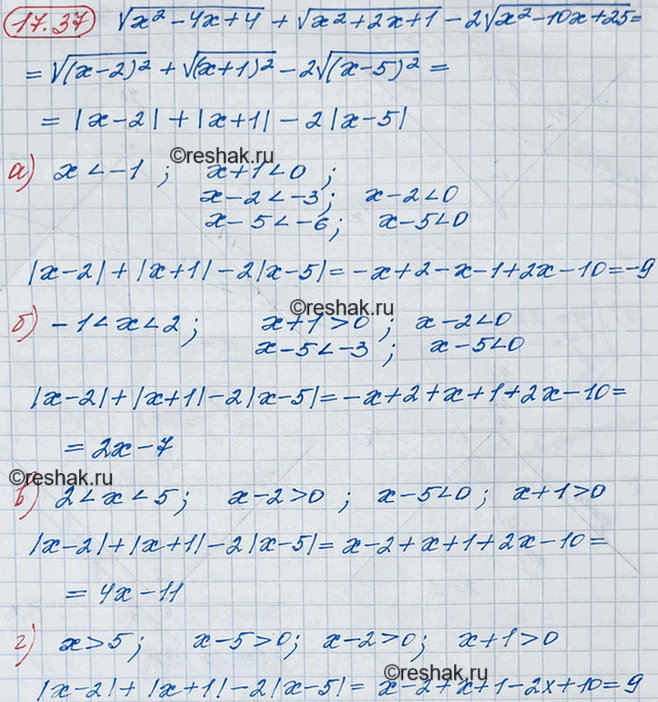 17.37 √(x²-4x+4) + √(x²+2x+1) - 2√(x²-10x+25) =
= √(x-2)² + √(x+1)² - 2√(x-5)² =
= |x-2| + |x+1| - 2|x-5|
©reshak.ru
а) x < -1 ; x+1 < 0 ;
x-2 < -3 ; x-2 < 0
x-5 < -6 ; x-5 < 0
|x-2| + |x+1| - 2|x-5| = -x+2-x-1+2x-10 = -9
©reshak.ru
б) -1 < x < 2 ; x+1 > 0 ; x-2 < 0
x-5 < -3 ; x-5 < 0
|x-2| + |x+1| - 2|x-5| = -x+2+x+1+2x-10 =
= 2x-7
©reshak.ru
в) 2 < x < 5 ; x-2 > 0 ; x-5 < 0 ; x+1 > 0
|x-2| + |x+1| - 2|x-5| = x-2+x+1+2x-10 =
= 4x-11
г) x > 5 ; x-5 > 0 ; x-2 > 0 ; x+1 > 0
©reshak.ru
|x-2| + |x+1| - 2|x-5| = x-2+x+1-2x+10 = 9